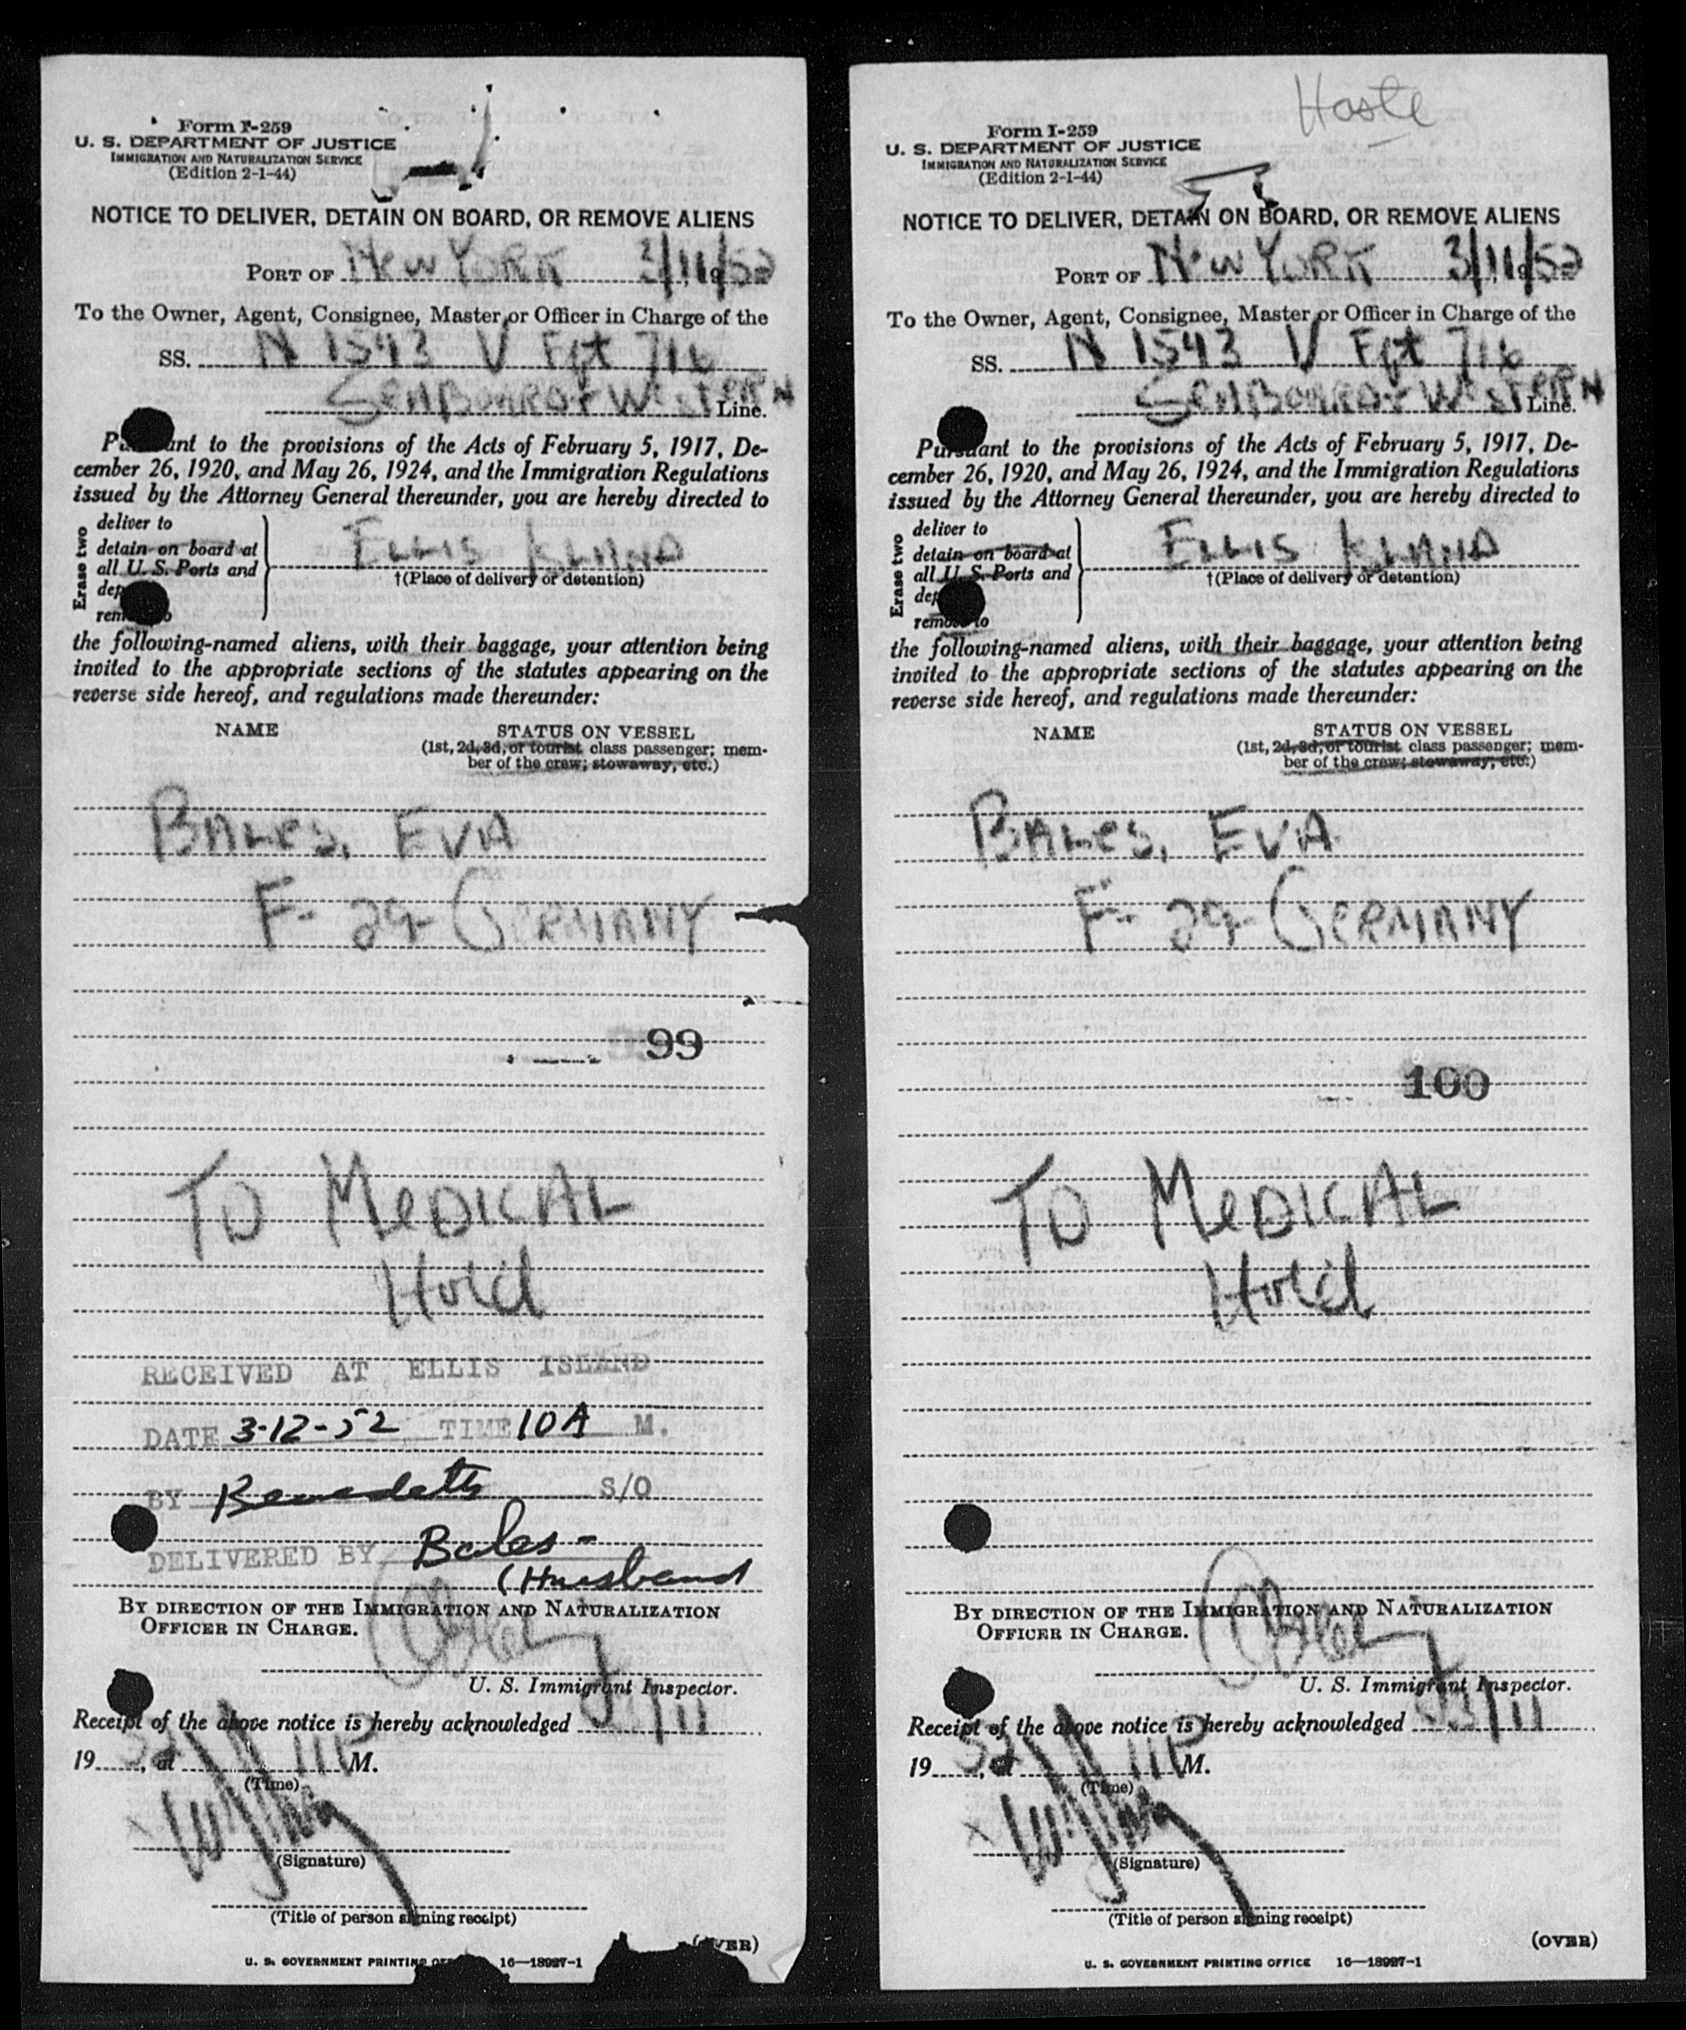 Form I-259
U. S. DEPARTMENT OF JUSTICE
IMMIGRATION AND NATURALIZATION SERVICE
(Edition 2-1-44)
NOTICE TO DELIVER, DETAIN ON BOARD, OR REMOVE ALIENS
PORT OF NEW YORK 3/11/52
To the Owner, Agent, Consignee, Master, or Officer in Charge of the
SS. N 1543 V Fgt 716
SEABOARD & WESTERN Line.
Pursuant to the provisions of the Acts of February 5, 1917, De-
cember 26, 1920, and May 26, 1924, and the Immigration Regulations
issued by the Attorney General thereunder, you are hereby directed to
Erase two
deliver to
detain on board at
all U. S. Ports and
dep
remove to
ELLIS ISLAND
†(Place of delivery or detention)
the following-named aliens, with their baggage, your attention being
invited to the appropriate sections of the statutes appearing on the
reverse side hereof, and regulations made thereunder:
NAME STATUS ON VESSEL
(1st, 2d, 3d, or tourist class passenger; mem-
ber of the crew; stowaway, etc.)
BALES, EVA
F- 29- GERMANY
99
TO MEDICAL
Hold
RECEIVED AT ELLIS ISLAND
DATE 3-12-52 TIME 10A M.
BY S/O
DELIVERED BY Bales -
(Husband
BY DIRECTION OF THE IMMIGRATION AND NATURALIZATION
OFFICER IN CHARGE.
U. S. Immigrant Inspector.
Receipt of the above notice is hereby acknowledged 3/11
19 52, at M.
(Time)
X
(Signature)
(Title of person signing receipt)
(OVER)
U. S. GOVERNMENT PRINTING OFFICE 16—18987-1
Haste
Form I-259
U. S. DEPARTMENT OF JUSTICE
IMMIGRATION AND NATURALIZATION SERVICE
(Edition 2-1-44)
NOTICE TO DELIVER, DETAIN ON BOARD, OR REMOVE ALIENS
PORT OF NEW YORK 3/11/52
To the Owner, Agent, Consignee, Master, or Officer in Charge of the
SS. N 1543 V Fgt 716
SEABOARD & WESTERN Line.
Pursuant to the provisions of the Acts of February 5, 1917, De-
cember 26, 1920, and May 26, 1924, and the Immigration Regulations
issued by the Attorney General thereunder, you are hereby directed to
Erase two
deliver to
detain on board at
all U. S. Ports and
dep
remove to
ELLIS ISLAND
†(Place of delivery or detention)
the following-named aliens, with their baggage, your attention being
invited to the appropriate sections of the statutes appearing on the
reverse side hereof, and regulations made thereunder:
NAME STATUS ON VESSEL
(1st, 2d, 3d, or tourist class passenger; mem-
ber of the crew; stowaway, etc.)
BALES, EVA
F- 29- GERMANY
100
TO MEDICAL
Hold
BY DIRECTION OF THE IMMIGRATION AND NATURALIZATION
OFFICER IN CHARGE.
U. S. Immigrant Inspector.
Receipt of the above notice is hereby acknowledged 3/11
19 52, at M.
(Time)
X
(Signature)
(Title of person signing receipt)
(OVER)
U. S. GOVERNMENT PRINTING OFFICE 16—18987-1